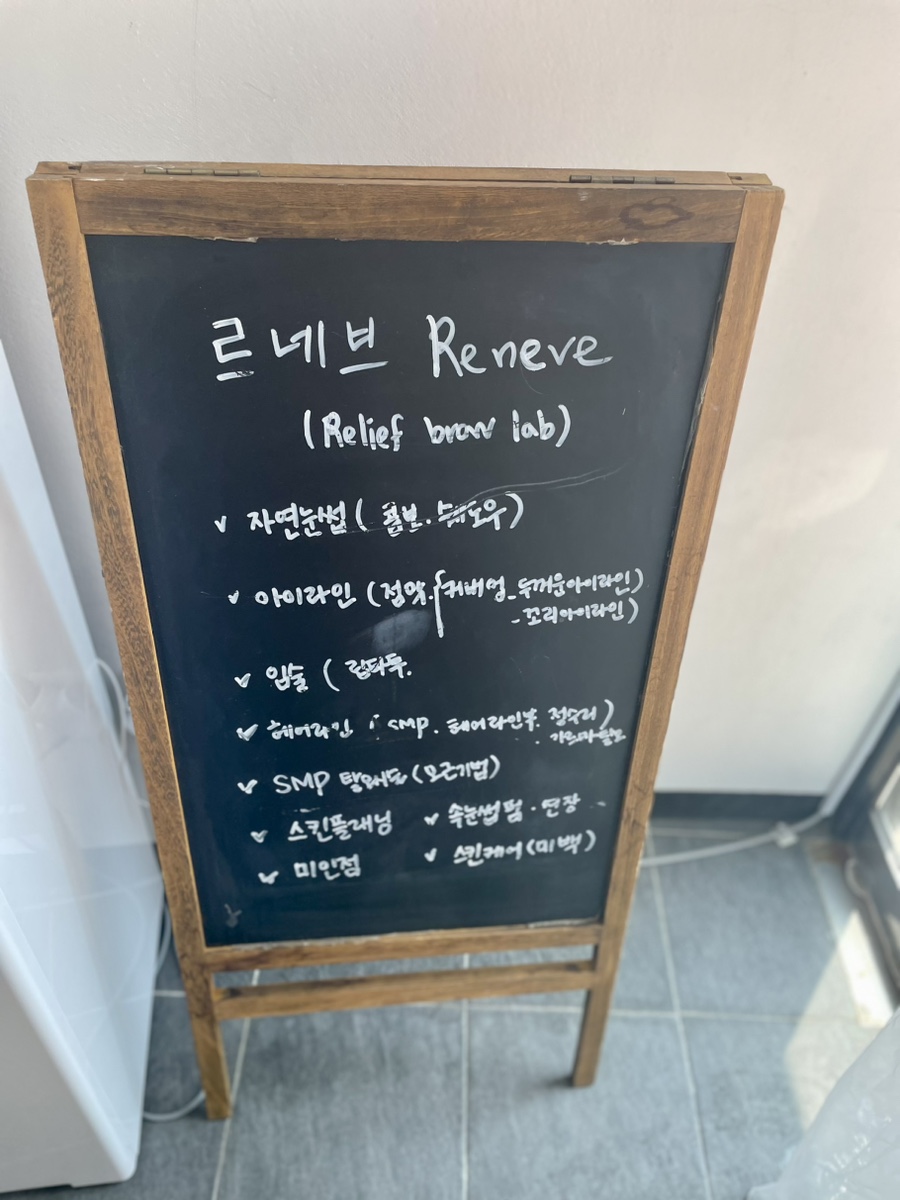 르네브 Reneve
(Relief brow lab)
✓ 자연눈썹 (콤보. 쉐도우)
✓ 아이라인 (점막. {커버업 - 두꺼운아이라인)
- 꼬리아이라인)
✓ 입술 ( 립타투.
✓ 헤어라인 ( SMP. 헤어라인부. 정수리)
. 가르마탈모
✓ SMP (모근기법)
✓ 스킨플래닝 ✓ 속눈썹펌 · 연장
✓ 미인점 ✓ 스킨케어(미백)